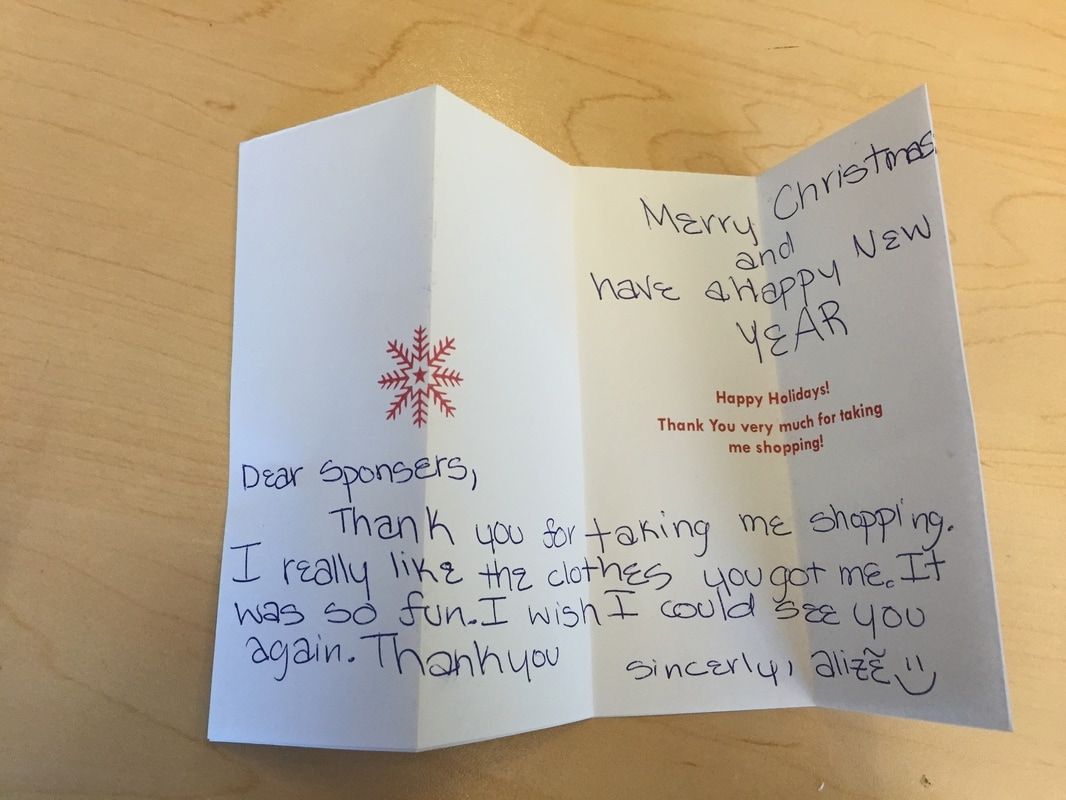 Merry Christmas
and
have a Happy NEW
YEAR
Happy Holidays!
Thank You very much for taking
me shopping!
Dear Sponsers,
Thank you for taking me shopping.
I really like the clothes you got me. It
was so fun. I wish I could see you
again. Thankyou sincerly, alizé :)